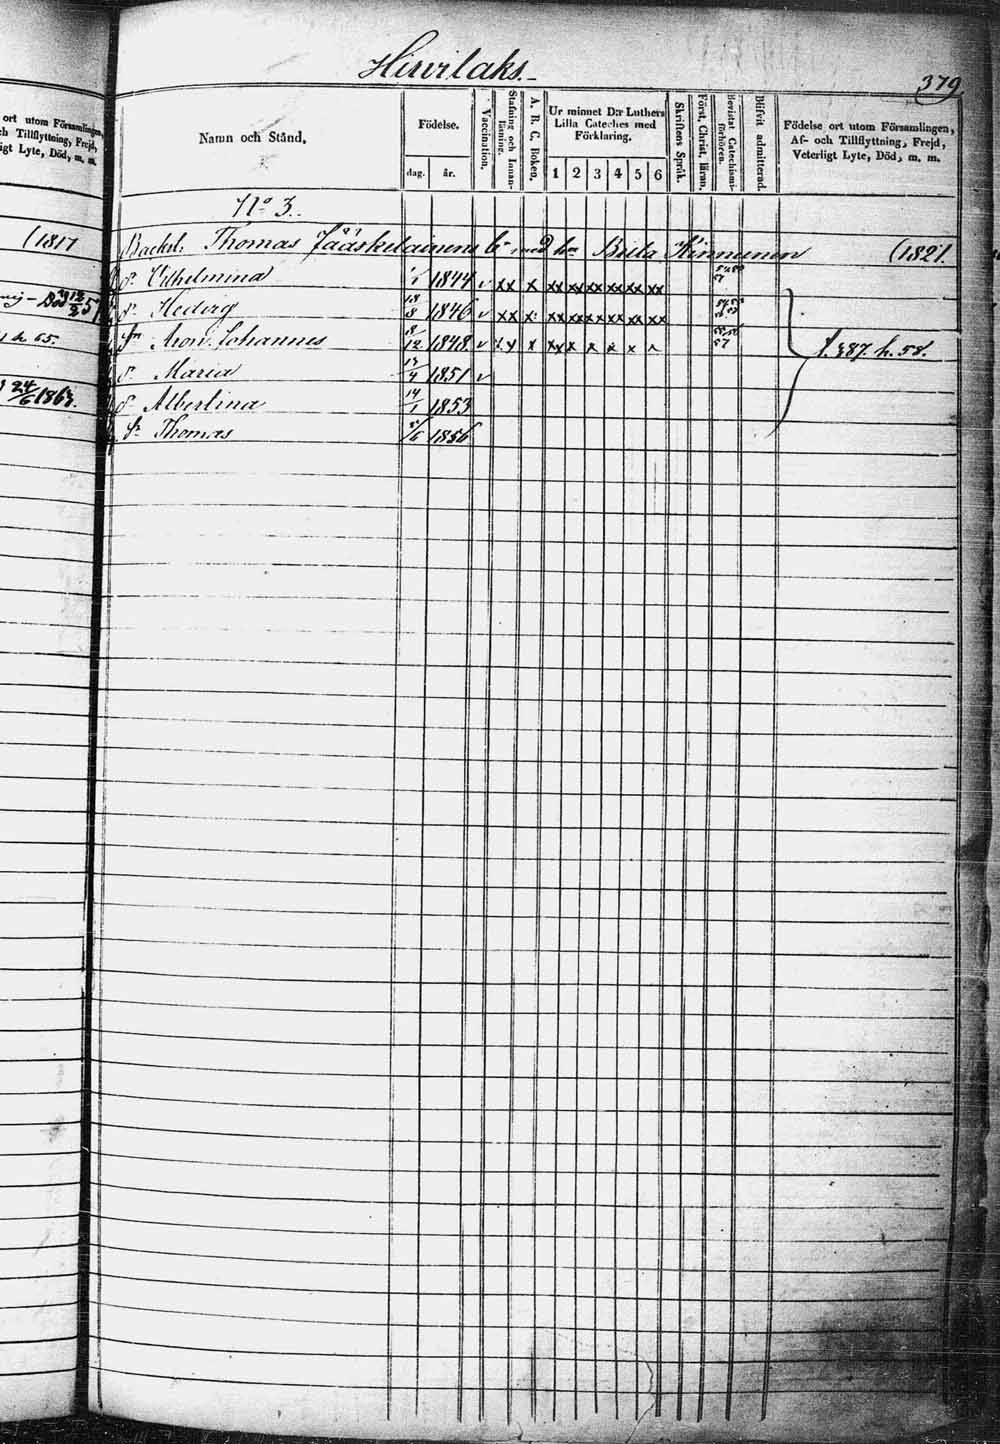 Hirvilaks.
379.
ort utom Församlingen,
ch Tillflyttning, Frejd,
igt Lyte, Död, m. m.
(1817
h. 65.
24/6 1863.
Namn och Stånd.
Födelse.
dag. år.
Vaccination.
Stafning och Innan-
läsning.
A. B. C. Boken.
Ur minnet D:r Luthers
Lilla Cateches med
Förklaring.
1 2 3 4 5 6
Skriftens Språk.
Först. Christ. läran.
Bevistat Catechismi-
förhören.
Blifvit admitterad.
Födelse ort utom Församlingen,
Af- och Tillflyttning, Frejd,
Veterligt Lyte, Död, m. m.
No 3.
Backst. Thomas Jääskeläinens b. med hu Brita Kinnunen (1821.
dr Vilhelmina 1/1 1844 v xx x xx xx xx xx xx xx
dr Hedvig 18/8 1846 v xx x xx xx xx xx xx xx
sn Aron Johannes 8/12 1848 v x x x xx x x x x 57
dr Maria 13/4 1851 v
dr Albertina 14/1 1853
sn Thomas 5/6 1856
f. 387. h. 58.